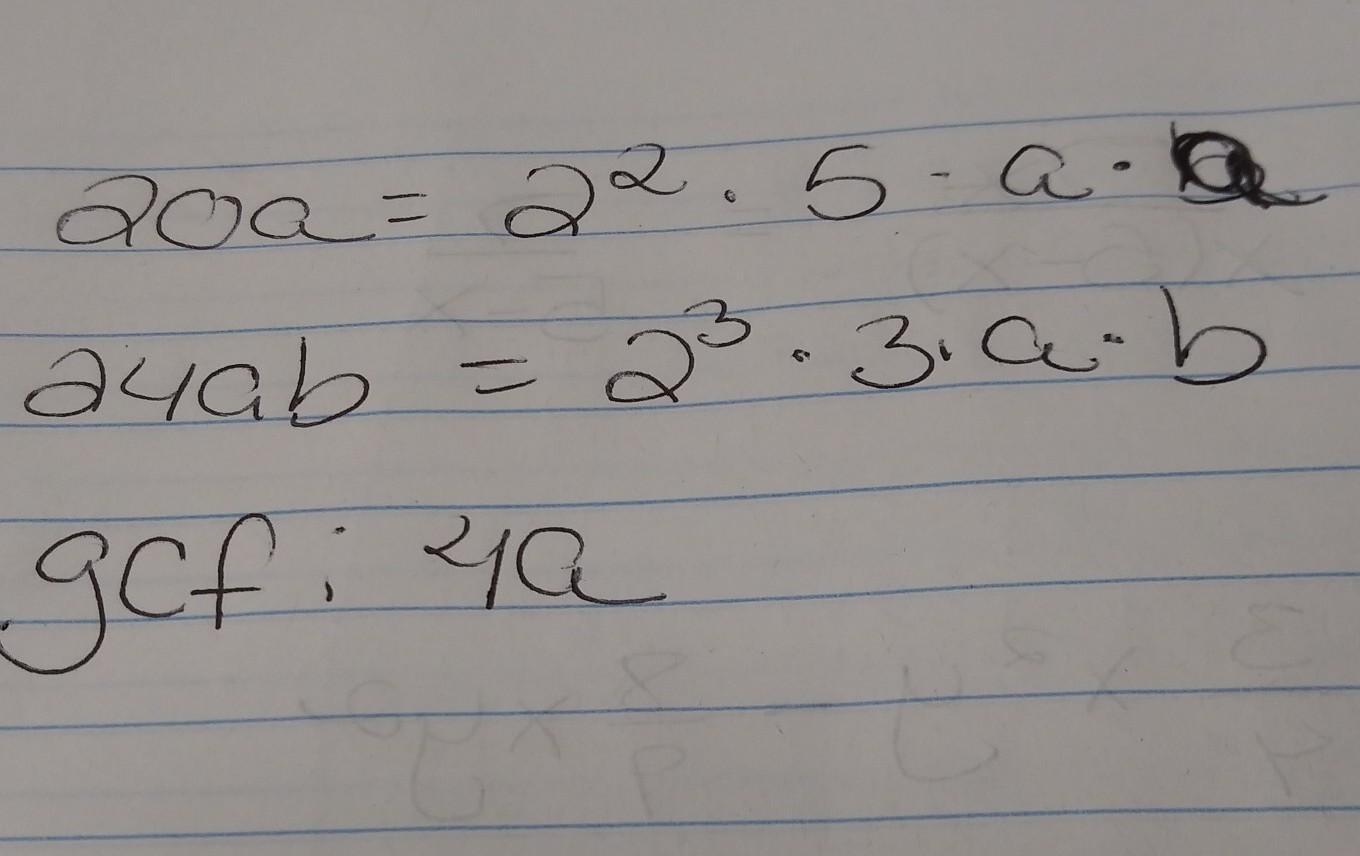 20a = 2² · 5 · a ·
24ab = 2³ · 3 · a · b
gcf : 4a